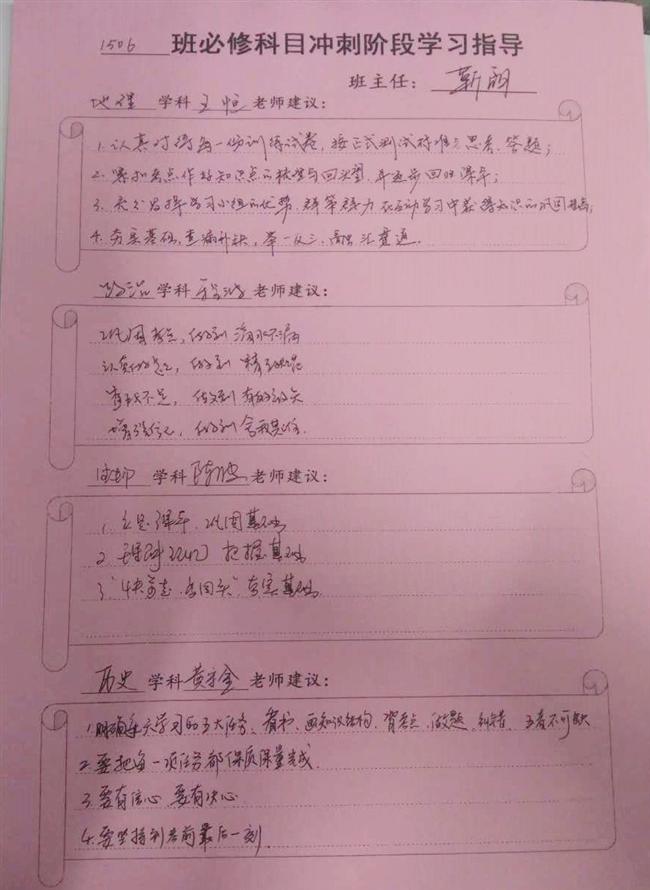 1506 班必修科目冲刺阶段学习指导
班主任： 靳雨
地理 学科 王恒 老师建议：
1. 认真对待每一份训练试卷，按正式测试标准去思考、答题；
2. 紧扣考点作好知识点的梳查与回望，并逐步回归课本；
3. 充分发挥学习小组的优势，群策群力 在互动学习中获得知识的巩固提高；
4. 夯实基础，查漏补缺，举一反三，融汇贯通。
政治 学科 老师建议：
巩固考点，做到滴水不漏
认真做题，做到精
不足，做到有的放矢
增强信心，做到舍我其谁
学科 陈 老师建议：
1. 立足课本，巩固基础
2. 把握基础
3. 多回头" 夯实基础
历史 学科 黄宗金 老师建议：
1. 明确每天学习的五大任务：看书、画知识结构、背考点、做题、纠错，五者不可缺
2. 要把每一项任务都保质保量完成
3. 要有信心 要有决心
4. 要坚持到考前最后一刻